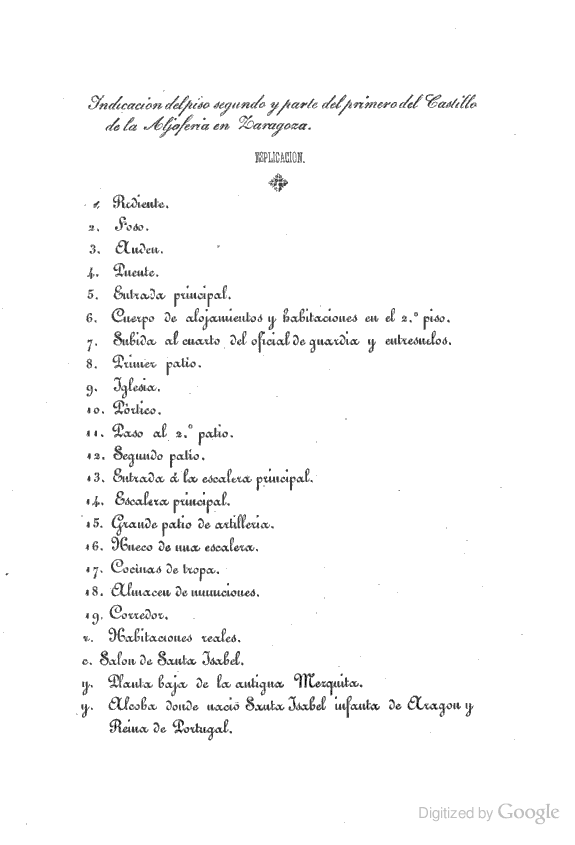 Indicacion del piso segundo y parte del primero del Castillo
de la Aljaferia en Zaragoza.
ESPLICACION.
1. Rediente.
2. Foso.
3. Anden.
4. Puente.
5. Entrada principal.
6. Cuerpo de alojamientos y habitaciones en el 2.º piso.
7. Subida al cuarto del oficial de guardia y entresuelos.
8. Primer patio.
9. Iglesia.
10. Pórtico.
11. Paso al 2.º patio.
12. Segundo patio.
13. Entrada á la escalera principal.
14. Escalera principal.
15. Grande patio de artilleria.
16. Hueco de una escalera.
17. Cocinas de tropa.
18. Almacen de municiones.
19. Corredor.
r. Habitaciones reales.
c. Salon de Santa Isabel.
y. Planta baja de la antigua Mezquita.
y. Alcoba donde nació Santa Isabel infanta de Aragon y
Reina de Portugal.
Digitized by Google